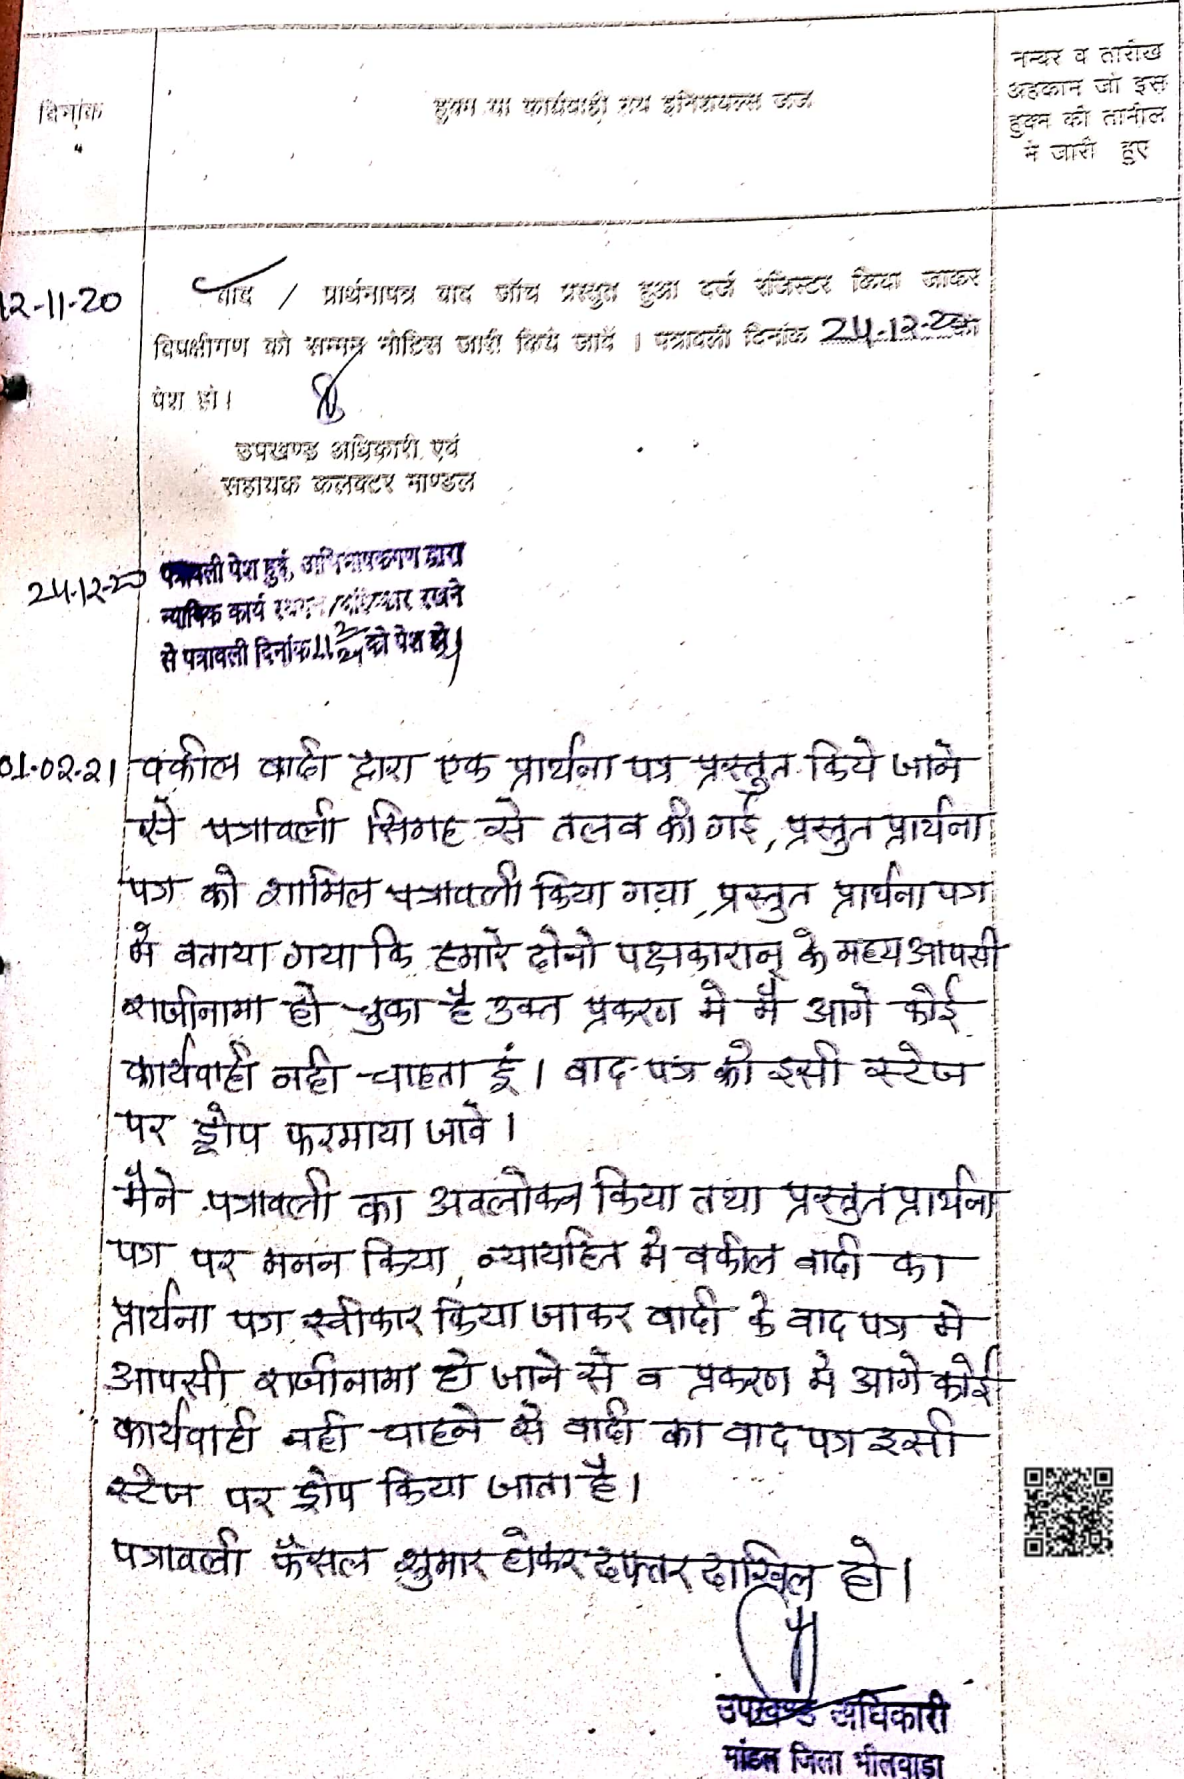 दिनांक
हुक्म या कार्यवाही मय इनिशयल्स जज
नम्बर व तारीख
अहकाम जो इस
हुक्म की तामील
में जारी हुए
12-11-20
वाद / प्रार्थनापत्र बाद जाँच प्रस्तुत हुआ दर्ज रजिस्टर किया जाकर
विपक्षीगण को सम्मन नोटिस जारी किये जावें । पत्रावली दिनांक 24-12-20 को
पेश हो।
उपखण्ड अधिकारी एवं
सहायक कलक्टर माण्डल
24-12-20
पत्रावली पेश हुई, अभिभाषकगण द्वारा
न्यायिक कार्य स्थगन/बहिष्कार रखने
से पत्रावली दिनांक को पेश हो।
01-02-21
वकील वादी द्वारा एक प्रार्थना पत्र प्रस्तुत किये जाने
से पत्रावली सिगह से तलब की गई, प्रस्तुत प्रार्थना
पत्र को शामिल पत्रावली किया गया, प्रस्तुत प्रार्थना पत्र
मे बताया गया कि हमारे दोनो पक्षकारान् के मध्य आपसी
राजीनामा हो चुका है उक्त प्रकरण मे मै आगे कोई
कार्यवाही नही चाहता हूं। वाद-पत्र को इसी स्टेज
पर ड्रोप फरमाया जावे।
मैने पत्रावली का अवलोकन किया तथा प्रस्तुत प्रार्थना
पत्र पर मनन किया, न्यायहित मे वकील वादी का
प्रार्थना पत्र स्वीकार किया जाकर वादी के वाद पत्र मे
आपसी राजीनामा हो जाने से व प्रकरण मे आगे कोई
कार्यवाही नही चाहने से वादी का वाद पत्र इसी
स्टेज पर ड्रोप किया जाता है।
पत्रावली फैसल शुमार होकर दफ्तर दाखिल हो।
उपखण्ड अधिकारी
मांडल जिला भीलवाड़ा